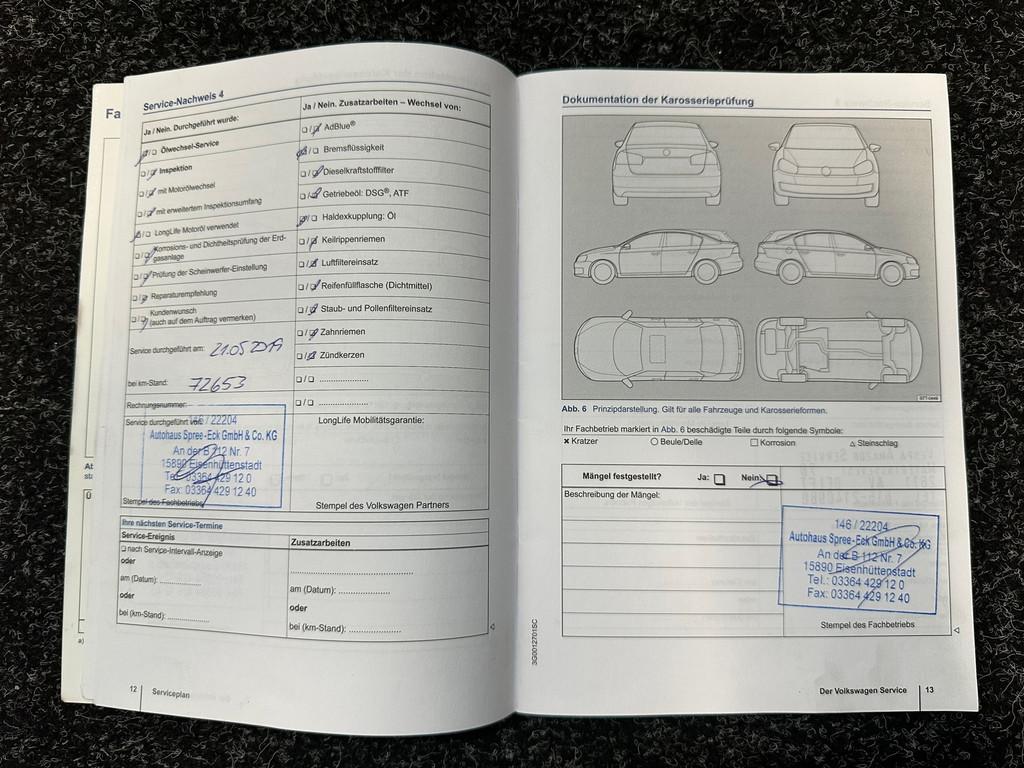 Fa
Service-Nachweis 4
Ja / Nein. Durchgeführt wurde:
Ölwechsel-Service
Inspektion
mit Motorölwechsel
mit erweitertem Inspektionsumfang
LongLife Motoröl verwendet
Korrosions- und Dichtheitsprüfung der Erd-
gasanlage
Prüfung der Scheinwerfer-Einstellung
Reparaturempfehlung
Kundenwunsch
(auch auf dem Auftrag vermerken)
Service durchgeführt am: 21.05.2019
bei km-Stand: 72653
Rechnungsnummer:
Service durchgeführt von:
146 / 22204
Autohaus Spree-Eck GmbH & Co. KG
An der B 112 Nr. 7
15890 Eisenhüttenstadt
Tel.: 03364 429 12 0
Fax: 03364 429 12 40
Stempel des Fachbetriebs
Ja / Nein. Zusatzarbeiten – Wechsel von:
AdBlue®
Bremsflüssigkeit
Dieselkraftstofffilter
Getriebeöl: DSG®, ATF
Haldexkupplung: Öl
Keilrippenriemen
Luftfiltereinsatz
Reifenfüllflasche (Dichtmittel)
Staub- und Pollenfiltereinsatz
Zahnriemen
Zündkerzen
LongLife Mobilitätsgarantie:
Stempel des Volkswagen Partners
Ihre nächsten Service-Termine
Service-Ereignis
nach Service-Intervall-Anzeige
oder
am (Datum):
oder
bei (km-Stand):
Zusatzarbeiten
am (Datum):
oder
bei (km-Stand):
12 Serviceplan
Dokumentation der Karosserieprüfung
Abb. 6 Prinzipdarstellung. Gilt für alle Fahrzeuge und Karosserieformen.
Ihr Fachbetrieb markiert in Abb. 6 beschädigte Teile durch folgende Symbole:
Kratzer Beule/Delle Korrosion Steinschlag
Mängel festgestellt? Ja: Nein:
Beschreibung der Mängel:
146 / 22204
Autohaus Spree-Eck GmbH & Co. KG
An der B 112 Nr. 7
15890 Eisenhüttenstadt
Tel.: 03364 429 12 0
Fax: 03364 429 12 40
Stempel des Fachbetriebs
3G0012701SC
Der Volkswagen Service 13